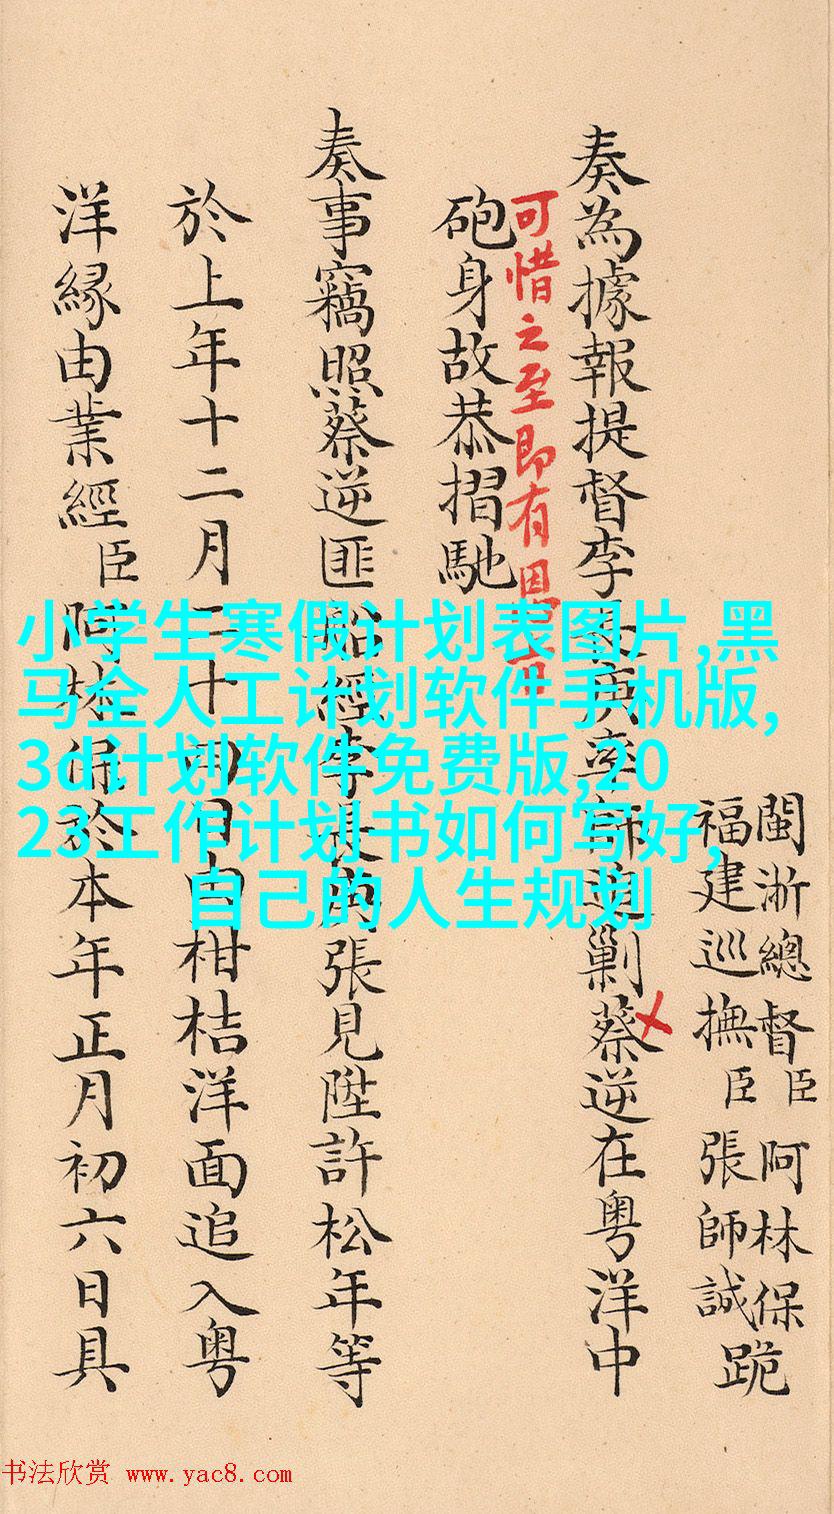 閩浙總督臣阿林保
福建巡撫臣張師誠
跪
奏為據報提督李長庚率師追剿蔡逆在粵洋中
可惜之至即有恩旨
砲身故恭摺馳
奏事竊照蔡逆匪船經李長庚張見陞許松年等
於上年十二月二十四日由柑桔洋面追入粵
洋緣由業經臣阿林保於本年正月初六日具
小学生寒假计划表图片,黑
马全人工计划软件手机版,
3d计划软件免费版,20
23工作计划书如何写好,
自己的人生规划
书法欣赏 www.yac8.com